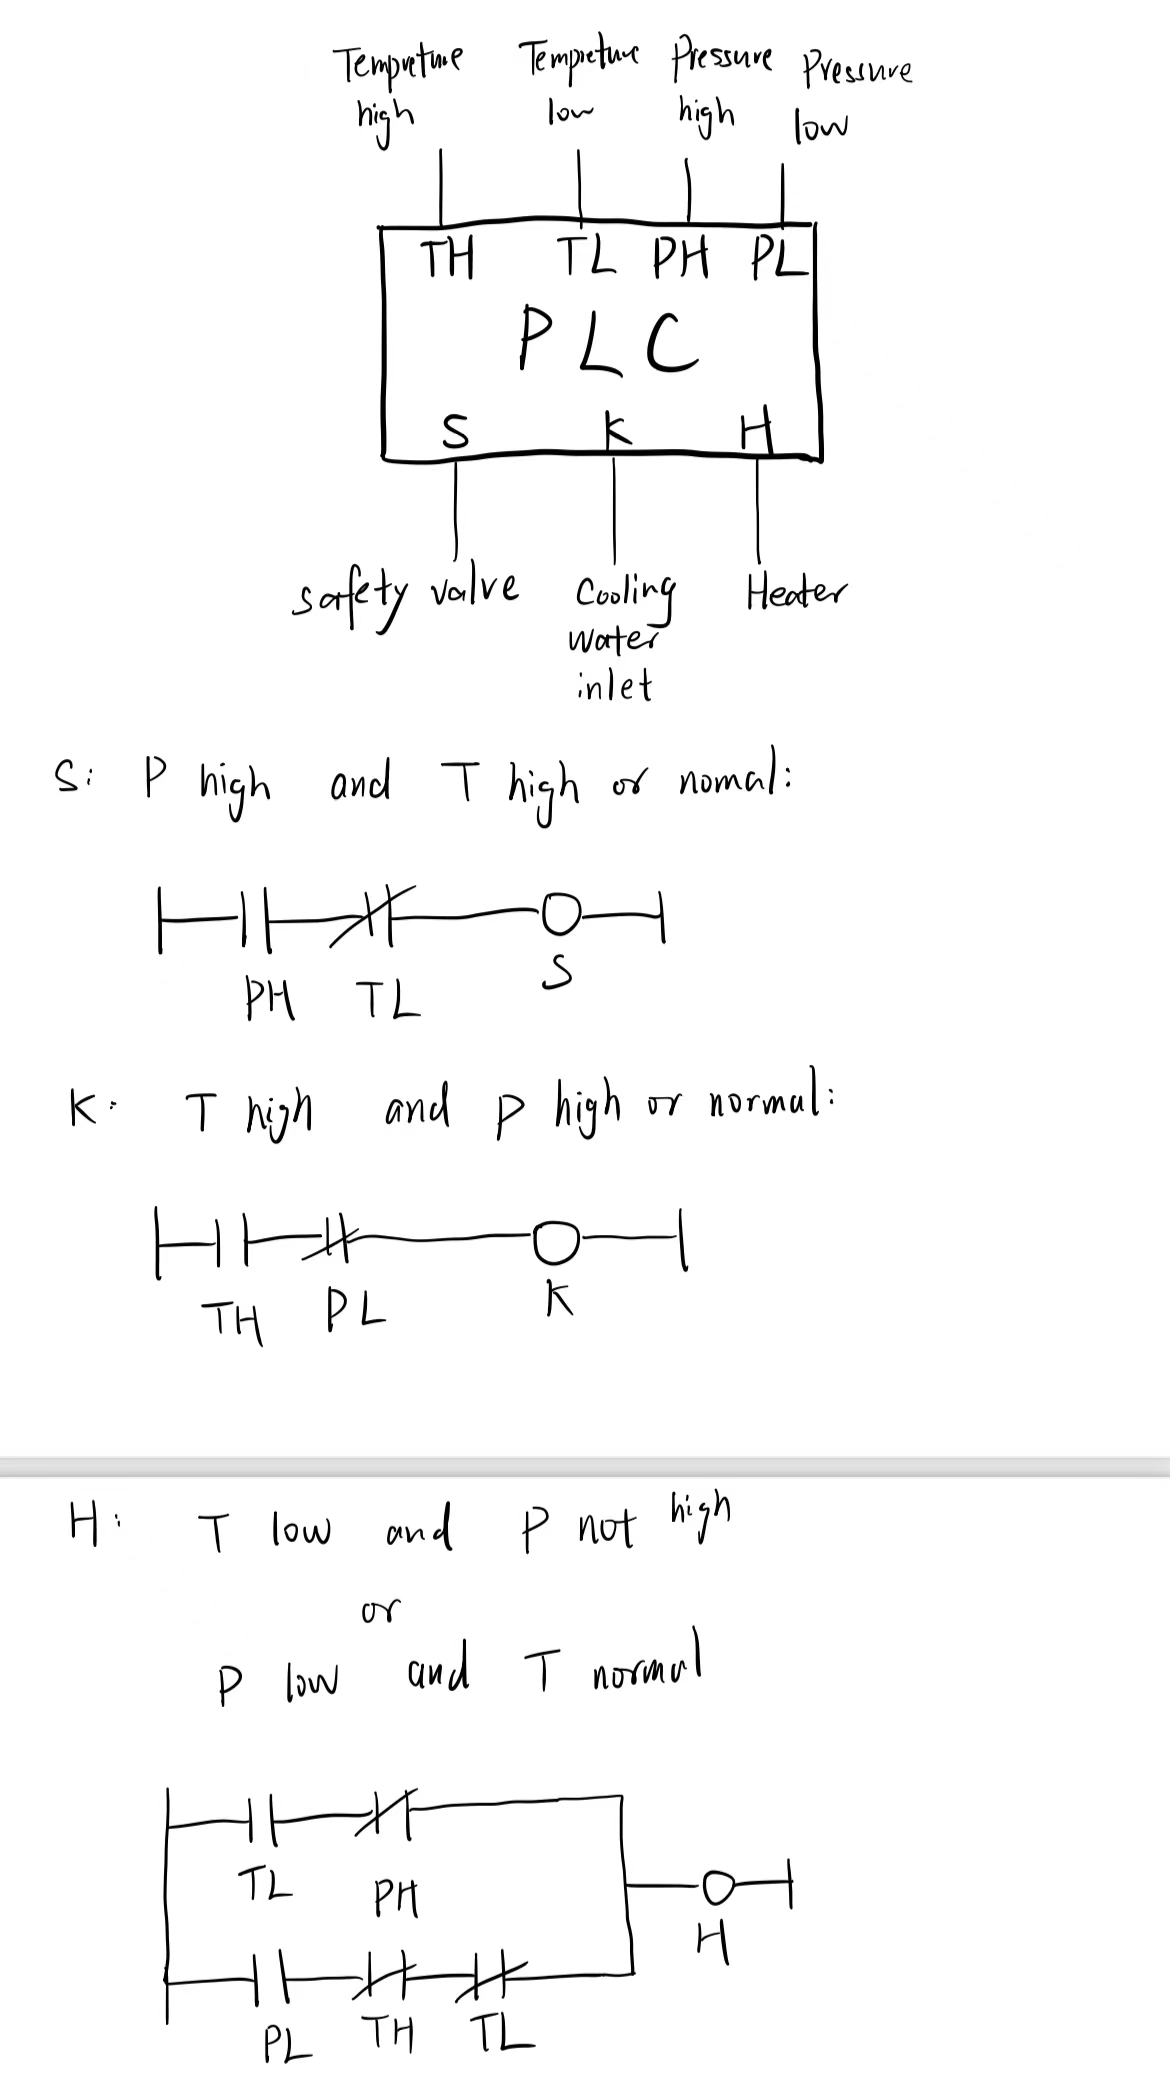 Tempreture Tempreture Pressure Pressure
high low high low
TH TL PH PL
PLC
S K H
safety valve Cooling Heater
water
inlet
S: P high and T high or nomal:
PH TL S
K: T high and P high or normal:
TH PL K
H: T low and P not high
or
P low and T normal
TL PH
H
PL TH TL